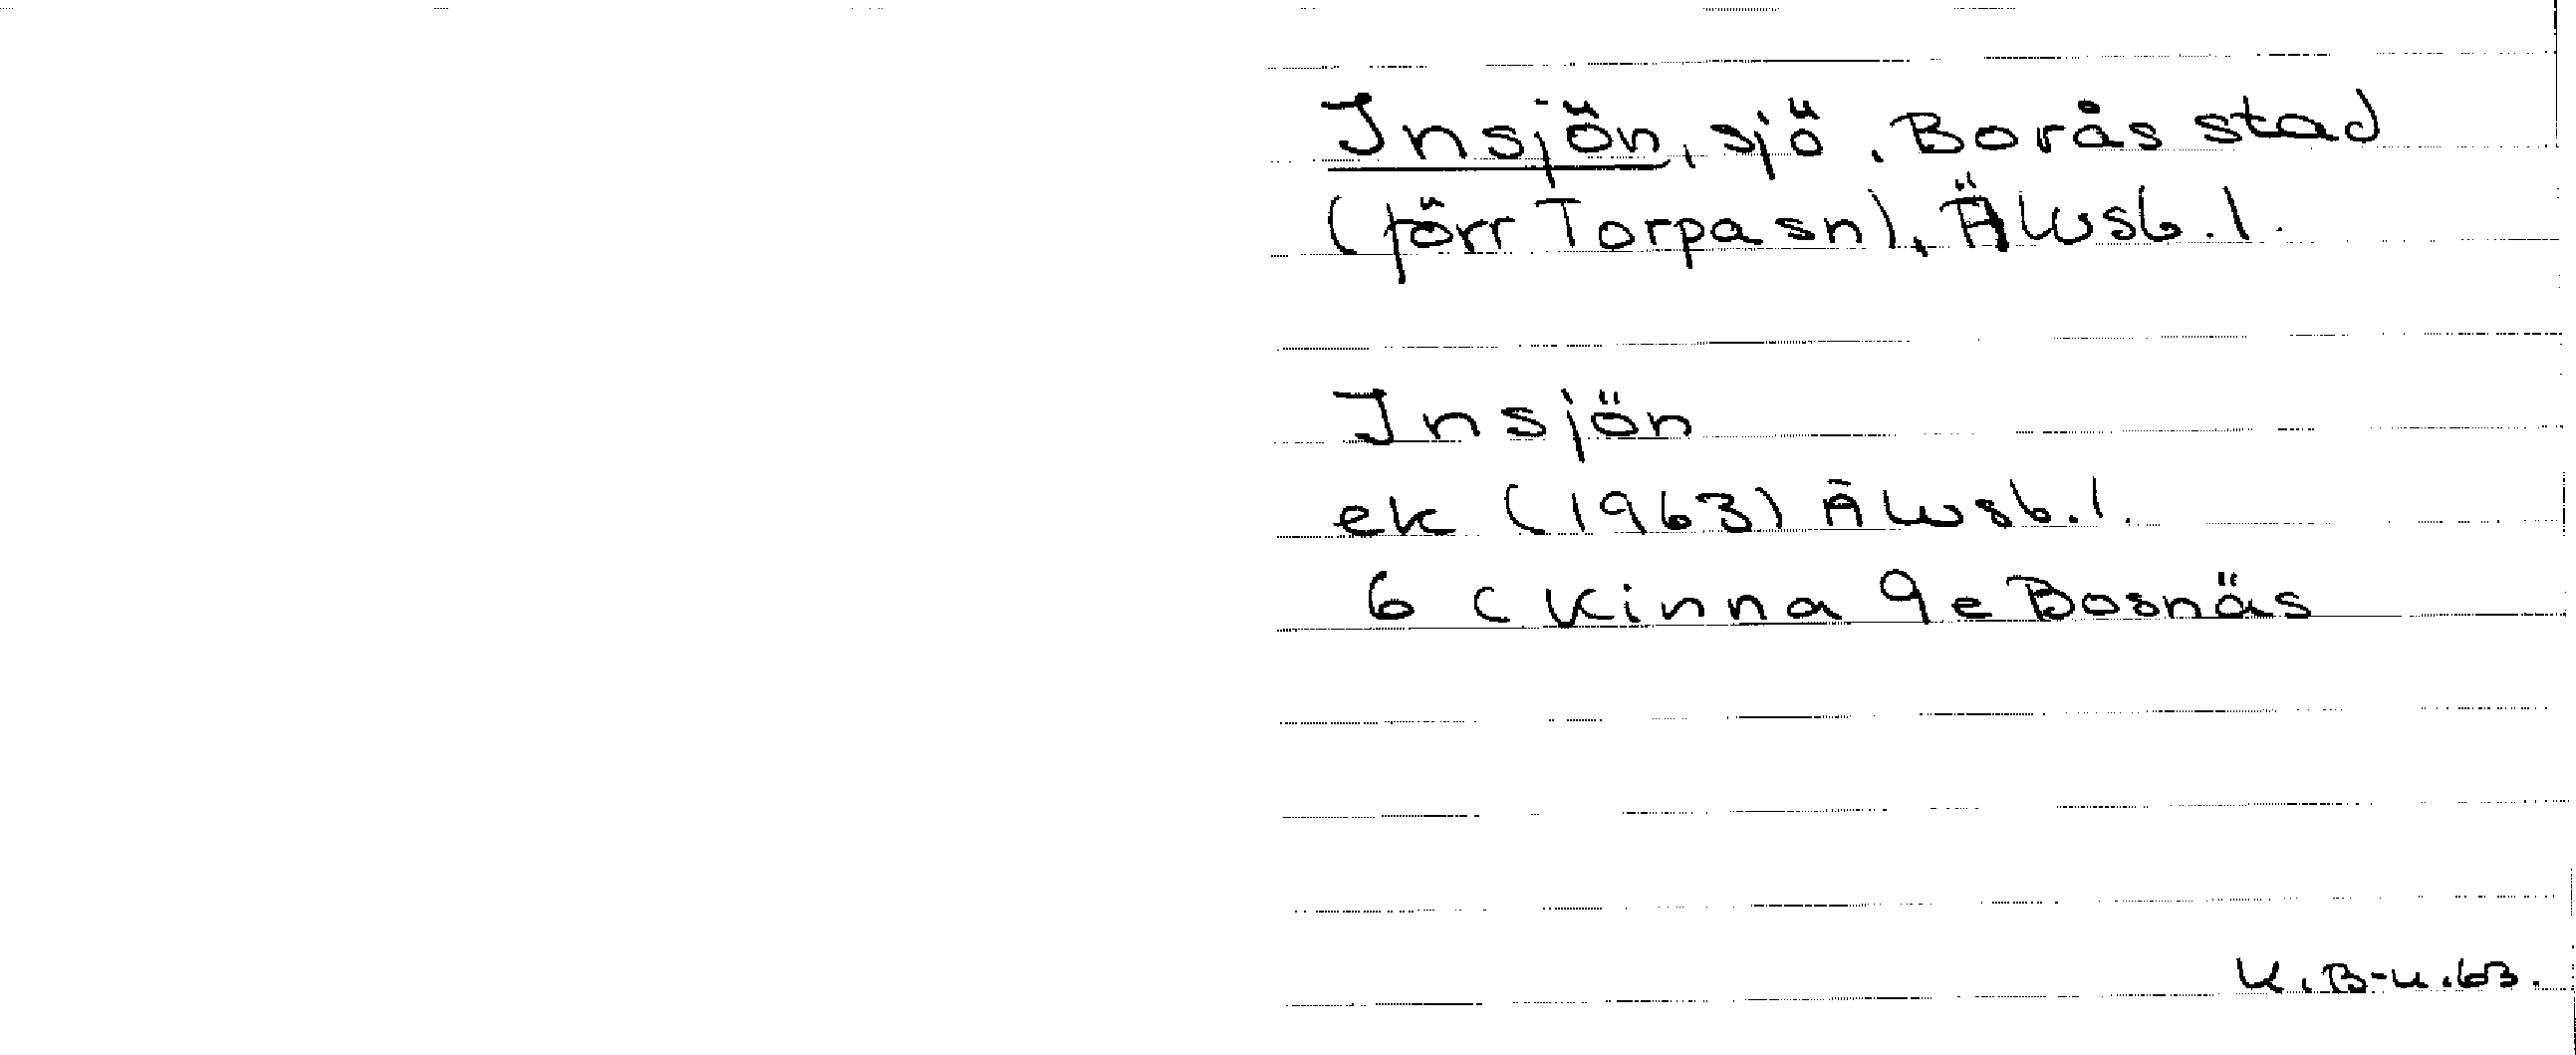 Insjön, sjö, Borås stad
(förr Torpa sn), Älvsb. l.
Insjön
ek (1963) Älvsb. l.
6 C Kinna 9e Bosnäs
K. B-k. 63.